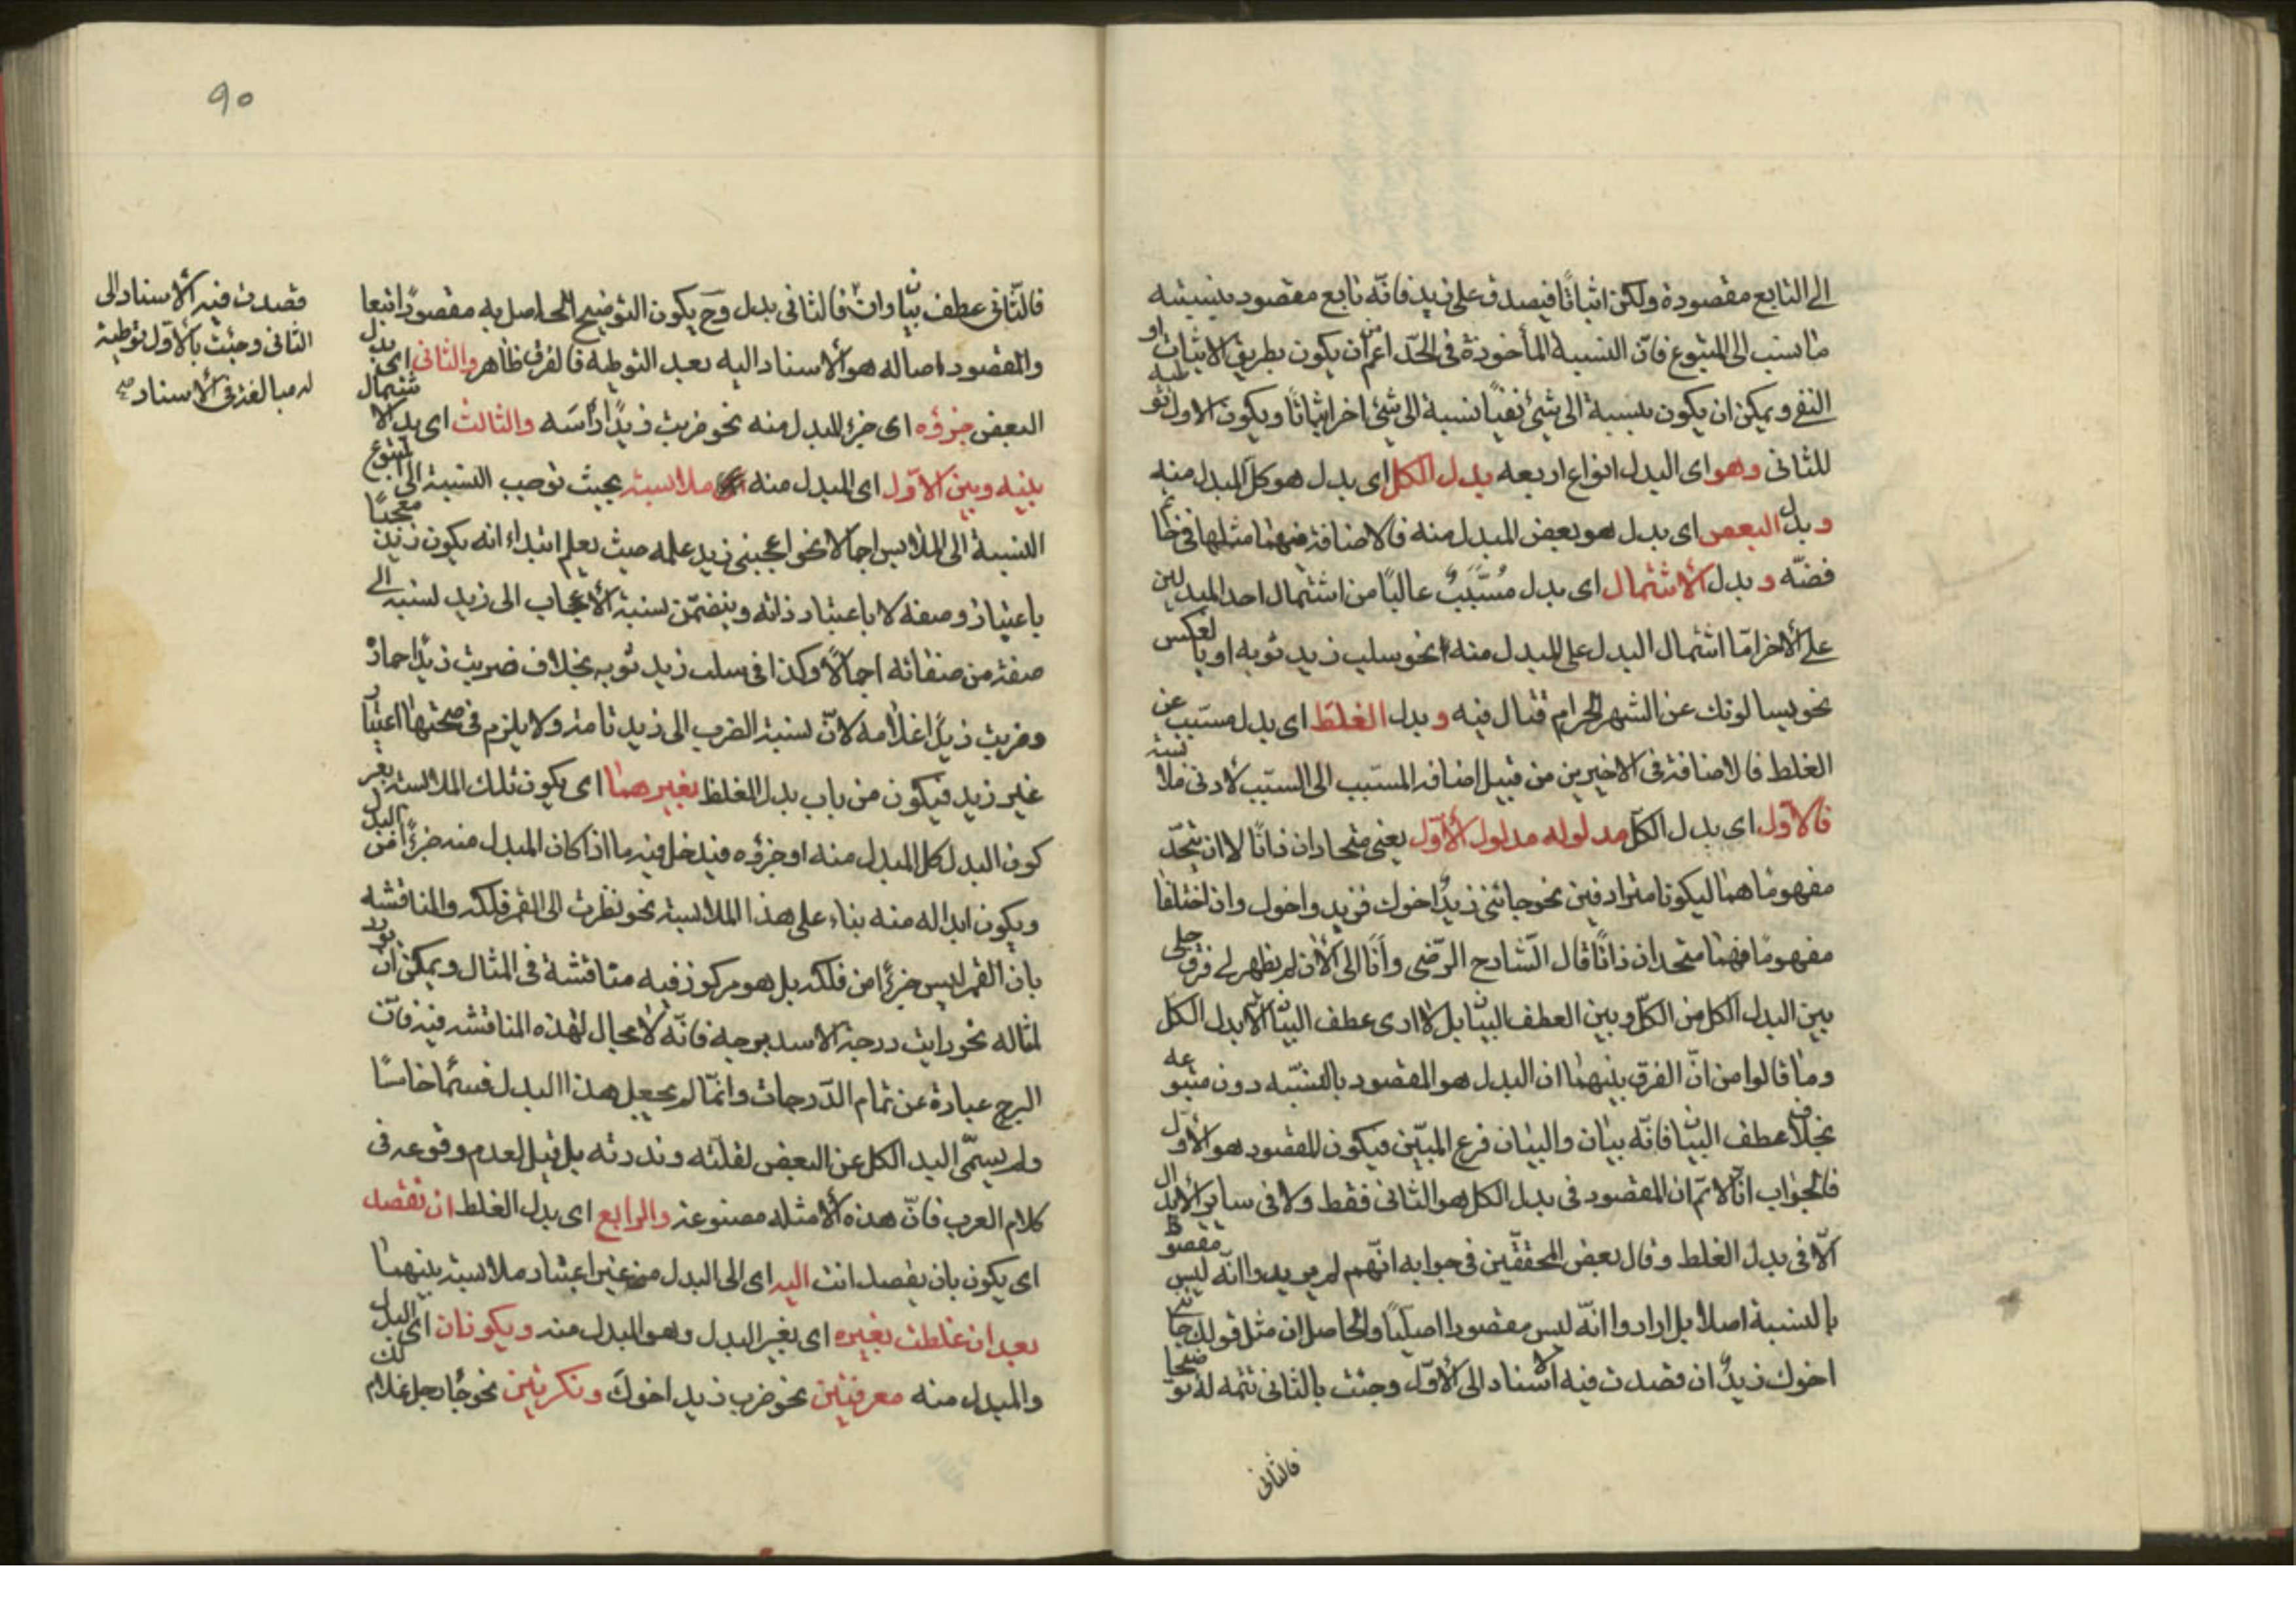 الى التابع مقصودة ولكن اثباتًا فيصدق على زيد فانّه تابع مقصود بنسبته
ما نسب الى المتبوع فانّ النسبة المأخوذة فى الحدّ اعم من ان يكون بطريق الاثبات او
النفى ويمكن ان يكون بنسبة الى شئ نفيًا نسبة الى شئ اخر اثباتًا ويكون الاول توطية
للثانى وهو اى البدل انواع اربعه بدل الكل اى بدل هو كل المبدل منه
وبدل البعض اى بدل هو بعض المبدل منه فالاضافة فيهما مثلها فى خاتم
فضّه وبدل الاشتمال اى بدل مُسَبَّبٌ غالبًا من اشتمال احد المبدلين
على الاخر امّا اشتمال البدل على المبدل منه نحو سلب زيد ثوبه او بالعكس
نحو يسالونك عن الشهر الحرام قتال فيه وبدل الغلط اى بدل مسبّب عن
الغلط فالاضافة فى الاخيرين من قبيل اضافه المسبّب الى السبّب لادنى ملابسة
فالاوّل اى بدل الكلّ مدلوله مدلول الأوّل يعنى متحدان ذاتًا لا ان يتحدّ
مفهوماهما ليكونا مترادفين نحو جائنى زيدٌ اخوك فزيد واخوك وان اختلفا
مفهومًا فهما متحدان ذاتًا قال الشّارح الرّضى وأنا الى الأن لم يظهر لى فرق جلى
بين البدل الكل من الكلّ وبين العطف البيان بل لا ارى عطف البيان الا بدل الكل
وما قالوا من انّ الفرق بينهما ان البدل هو المقصود بالنسّبه دون متبوعه
بخلاف عطف البيان فانّه بيان والبيان فرع المبيّن فيكون المقصود هو الأوّل
فالجواب انّا لا نم ان المقصود فى بدل الكل هو الثانى فقط ولا فى ساير الأبدال
الّا فى بدل الغلط وقال بعض المحققّين فى جوابه انّهم لم يريدوا انّه ليس مقصودا
بالنسبة اصلا بل ارادوا انّه ليس مقصودا اصليًا والحاصل ان مثل قولك جائنى
اخوك زيدٌ ان قصدت فيه الاسناد الى الأوّل وجئت بالثانى تتمه له توضيحا
فالثانى
90
فالثّانى عطف بيان وان فالثانى بدل وح يكون التوضيح الحاصل به مقصودًا تبعا
والمقصود اصاله هو الأسناد اليه بعد التوطيه فالفرق ظاهر والثانى اى بدل
البعض جزؤه اى جزء المبدل منه نحو ضربت زيدًا رأسَه والثالث اى بدل الاشتمال
بينه وبين الاوّل اى المبدل منه ملابسة بحيث توجب النسبة الى المتبوع
النسبة الى الملابس اجمالا نحو اعجبنى زيد علمه حيث يعلم ابتداء انه يكون زيد معجبًا
باعتبار صفه لا باعتبار ذاته ويتضمّن نسبة الأعجاب الى زيد نسبته الى
صفة من صفاته اجمالًا وكذا فى سلب زيد ثوبه بخلاف ضربت زيدًا حماره
وضربت زيدًا غلامه لانّ نسبة الضرب الى زيد تامة ولا يلزم فى صحتها اعتبار
غير زيد فيكون من باب بدل الغلط بغيرهما اى يكون تلك الملابسة بغير
كون البدل كل المبدل منه او جزؤه فيدخل فيه ما اذا كان المبدل منه جزءًا من البدل
ويكون ابداله منه بناء على هذا الملابسة نحو نظرت الى القمر فلكه والمناقشه
بان القمر ليس جزءًا من فلكه بل هو مركوز فيه مناقشة فى المثال ويمكن ان يورد
لمثاله نحو رايت درجة الاسد برجه فانّه لا مجال لهذه المناقشه فيه فانّ
البرج عبارة عن تمام الدّرجات وانّما لم يجعل هذا البدل قسمًا خامسًا
ولم يسمّى البدل الكل عن البعض لقلّته وندرته بل قيل لعدم وقوعه فى
كلام العرب فانّ هذه الأمثله مصنوعة والرابع اى بدل الغلط ان تقصد
اى يكون بان يقصد انت اليه اى الى البدل من غير اعتبار ملابسة بينهما
بعد ان غلطت بغيره اى بغير البدل وهو المبدل منه ويكونان اى البدل
والمبدل منه معرفتين نحو ضرب زيد اخوك ونكرتين نحو جاء رجل غلام لك
قصدت فيه الأسناد الى
الثانى وجئت بالأوّل توطية
له مبالغة فى الأسناد صح